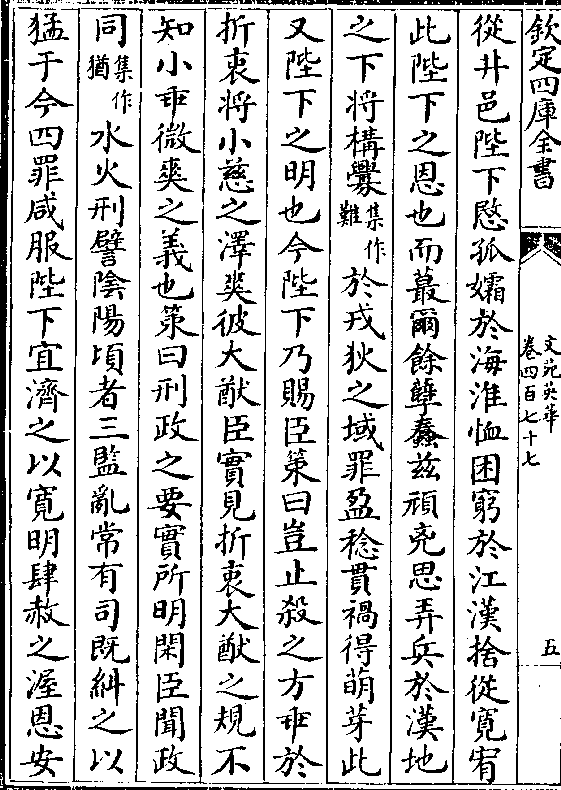 欽定四庫全書
文苑英華
卷四百七十七
五
從井邑陛下愍孤孀於海淮恤困窮於江漢捨從寛宥
此陛下之恩也而蕞爾餘孽蠢兹頑兇思弄兵於漢地
之下將構釁集作難於戎狄之域罪盈稔貫禍得萌芽此
又陛下之明也今陛下乃賜臣策曰豈止殺之方乖於
折衷将小慈之澤爽彼大猷臣實見折衷大猷之規不
知小乖微爽之義也策曰刑政之要實所明閑臣聞政
同集作猶水火刑譬陰陽頃者三監亂常有司既糾之以
猛于今四罪咸服陛下宜濟之以寛明肆赦之渥恩安